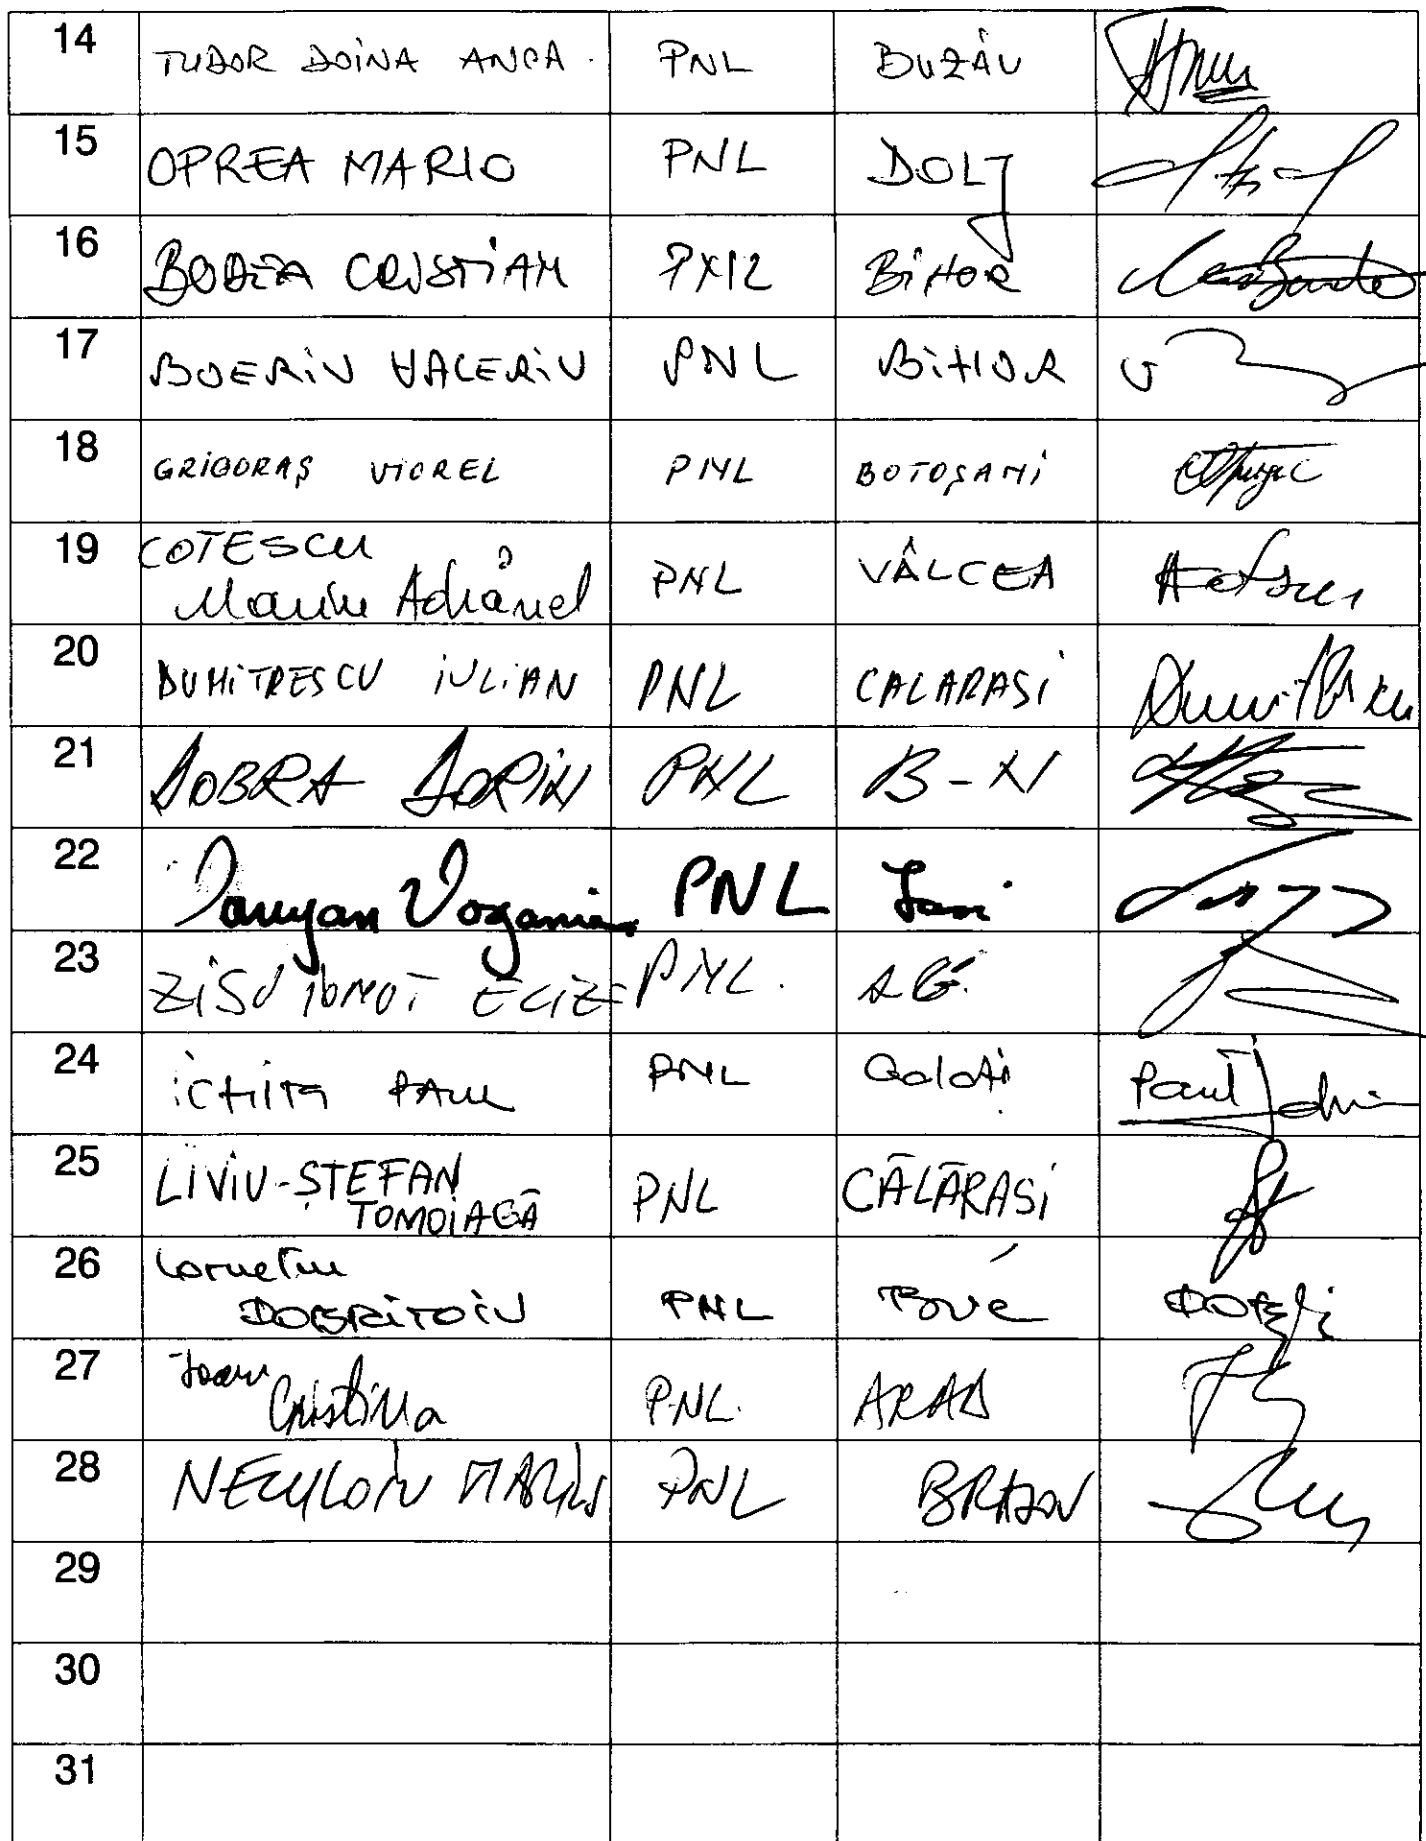 14 TUDOR DOINA ANCA PNL BUZĂU
15 OPREA MARIO PNL DOLJ
16 BODEA CRISTIAN PNL BIHOR
17 BOERIU VALERIU PNL BIHOR
18 GRIGORAȘ VIOREL PNL BOTOȘANI
19 COTESCU PNL VÂLCEA
Marin Adrănel
20 DUMITRESCU IULIAN PNL CALARASI Dumitrescu
21 DOBRA DORIN PNL B-N
22 PNL Iasi
23 ZISU IONUȚ PNL. AG.
24 ICHIM PAUL PNL Galați Paul
25 LIVIU-ȘTEFAN PNL CĂLĂRASI
TOMOIAGĂ
26 Corneliu
DOBRITOIU PNL BUC
27 Ioan
Cristina PNL. ARAD
28 NECULOIU MARIUS PNL BRASOV
29
30
31